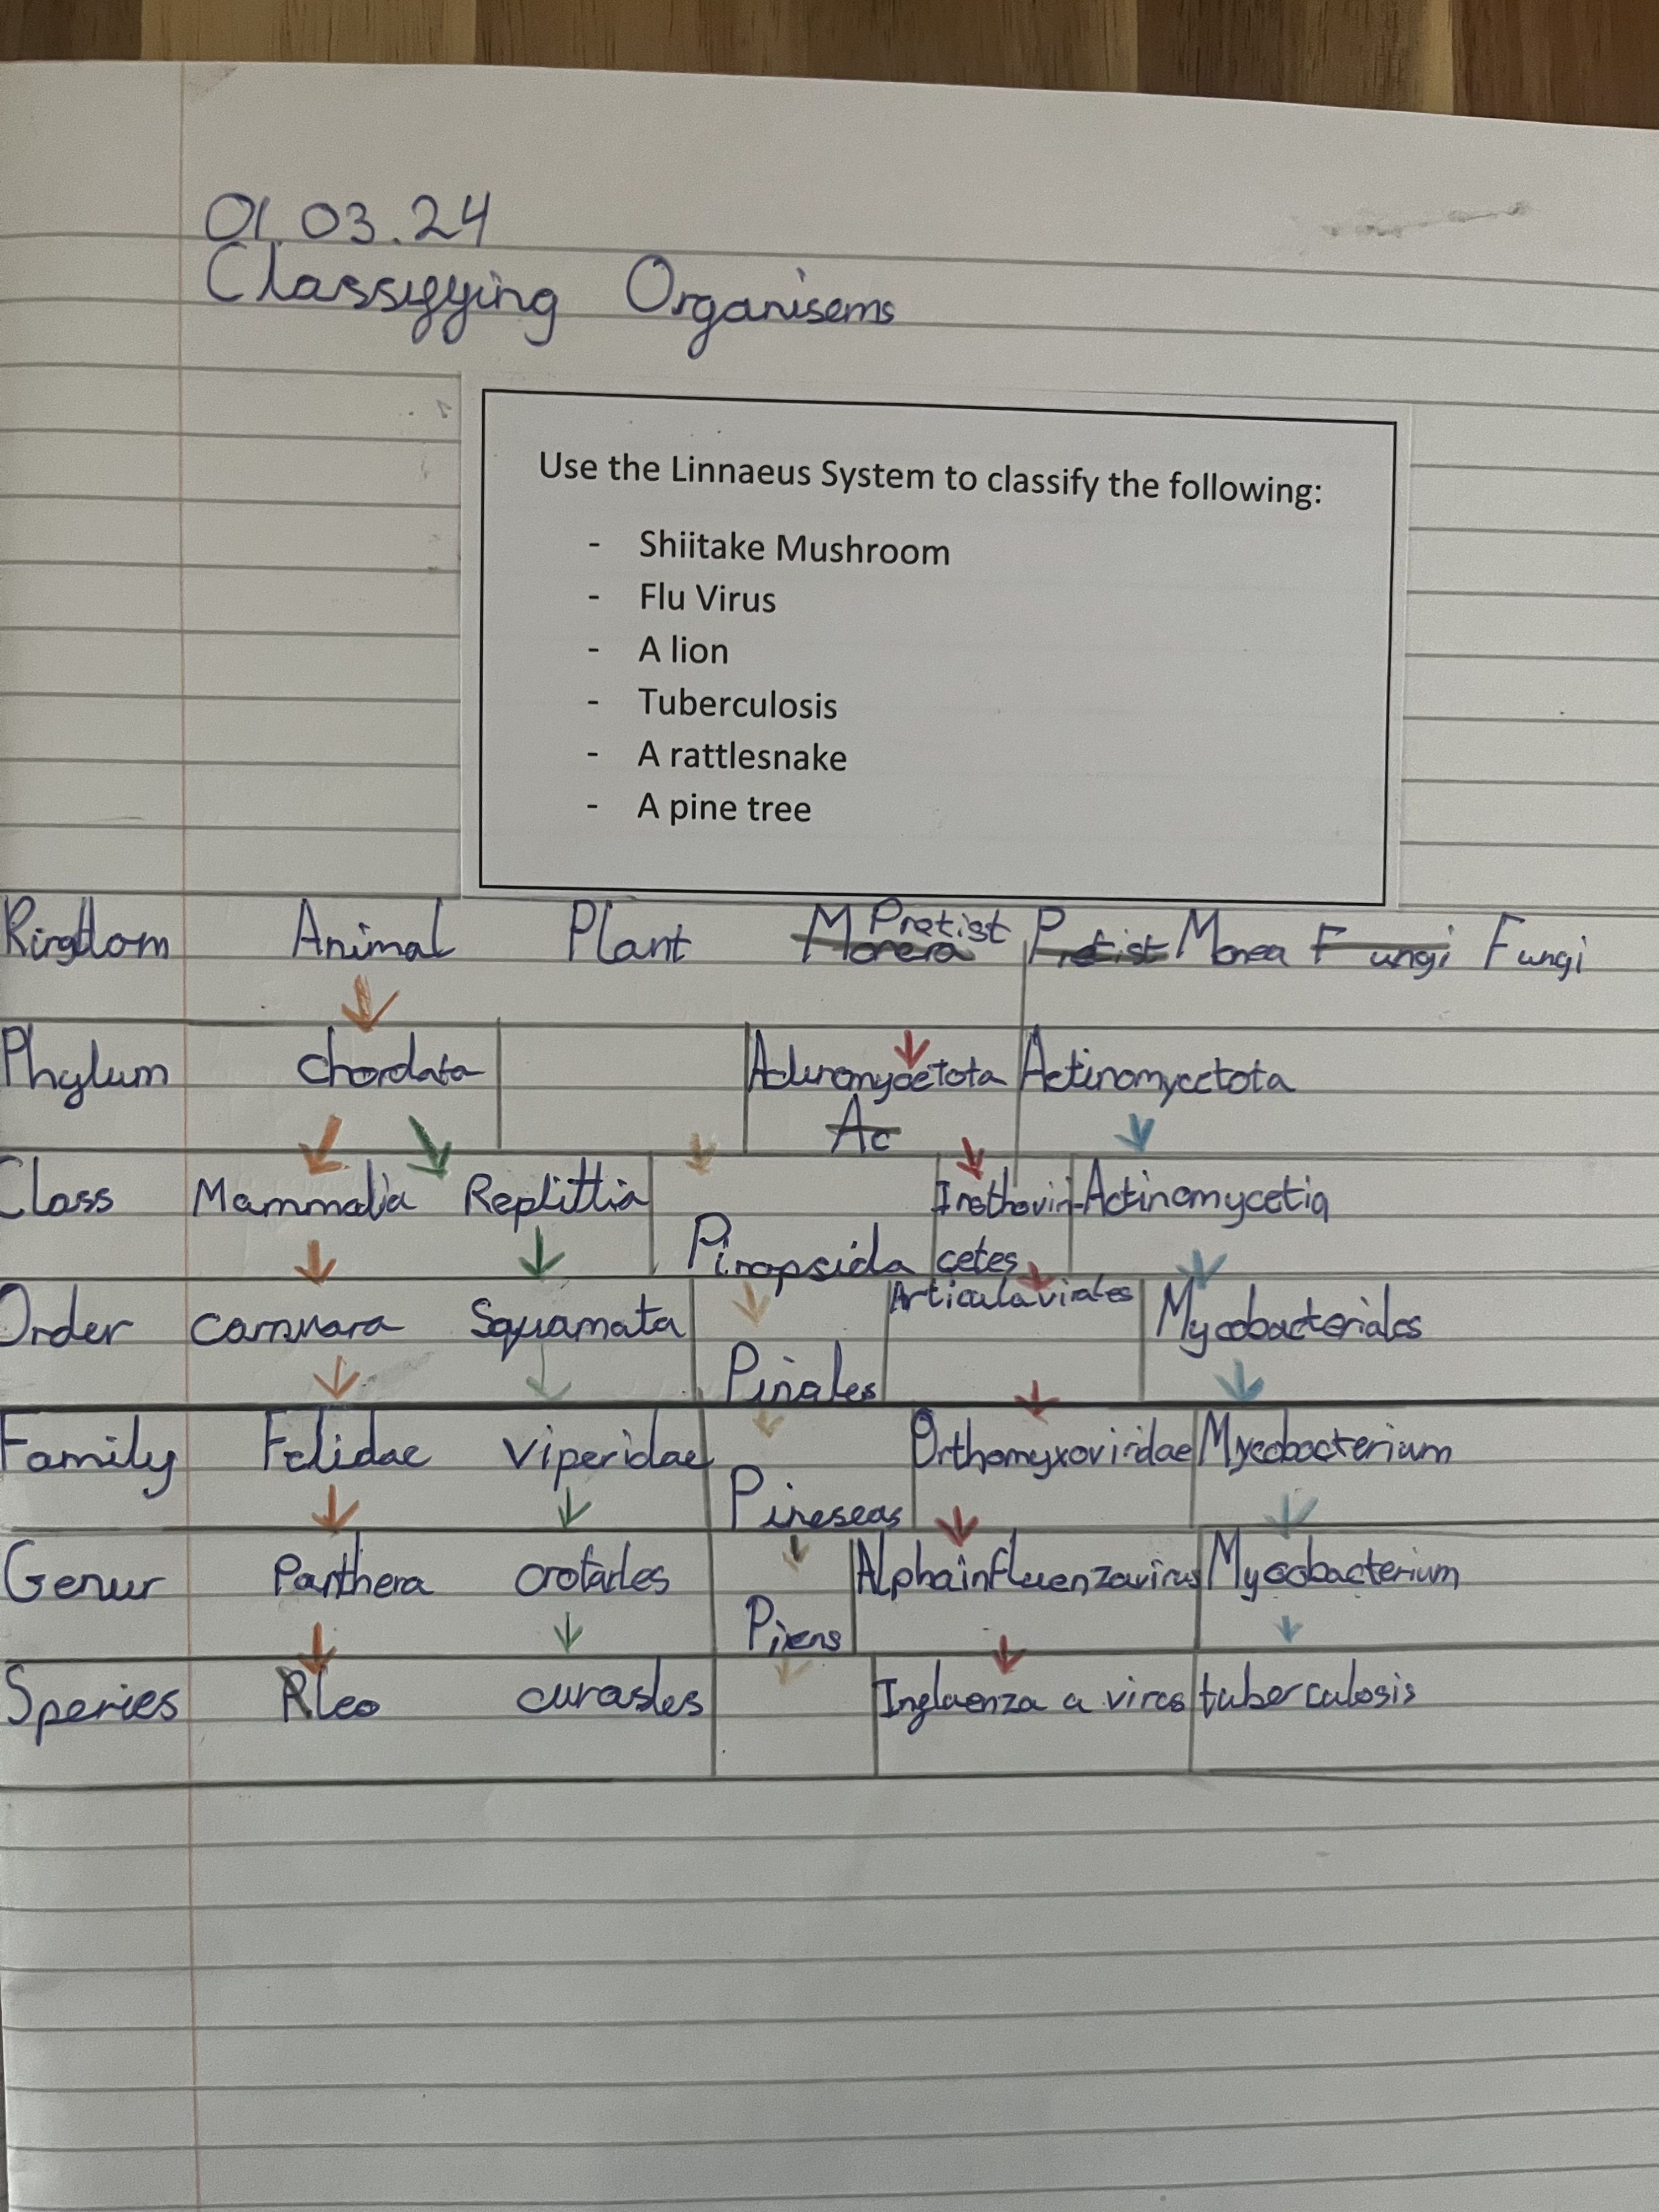 01.03.24
Classifying Organisems
Use the Linnaeus System to classify the following:
- Shiitake Mushroom
- Flu Virus
- A lion
- Tuberculosis
- A rattlesnake
- A pine tree
Kingdom Animal Plant Morera Protist Protist Monea Fungi Fungi
Phylum Chordata Actinomycetota Actinomycetota
Ac
Class Mammalia Replittia Pinopsida Insthoviri-cetes Actinomycetia
Order carnivara Squamata Pinales Articulavirales Mycobacteriales
Family Felidae viperidae Pineseas Orthomyxoviridae Mycobacterium
Genur Panthera crotales Pinens Alphainfluenzavirus Mycobacterium
Speries Rleo curastes Inflaenza a vires tuberculosis